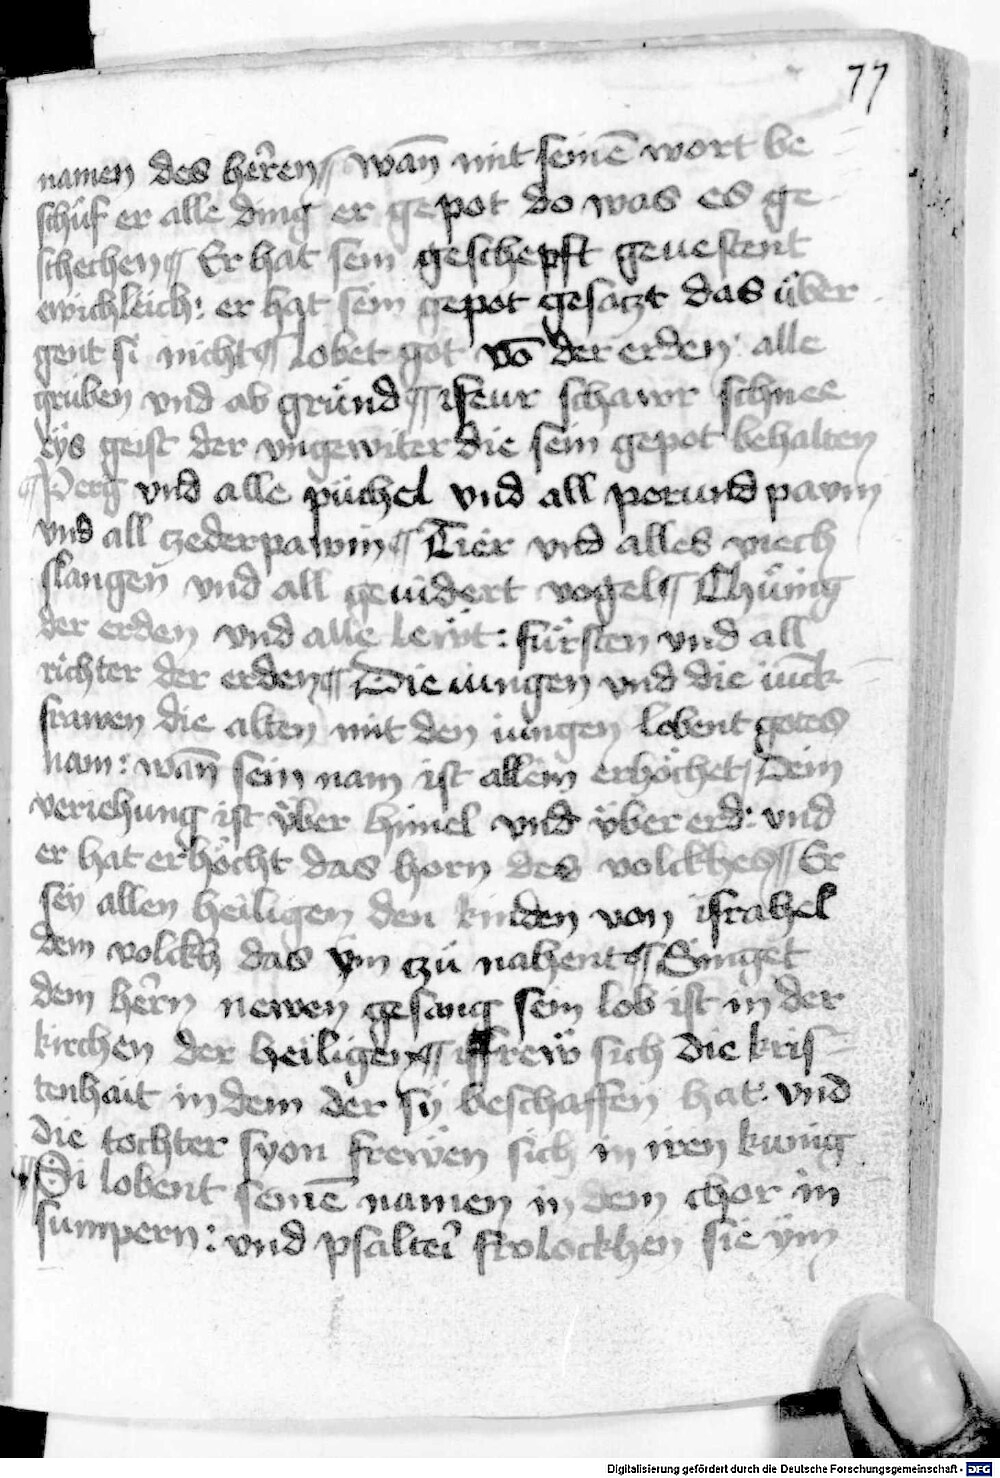 77
namen des heren¶ wan̄ mit seinē wort be
schüf er alle ding er gepot do was es ge
schechen¶ Er hat sein geschepft geuestent
ewichleich: er hat sein gepot gesaczt das über
gent si nicht¶ lobet got vō der erden: alle
grüben vnd ab gründ¶ ffeur schawr schnee
eÿs geist der vngewiter die sein gepot behalten
¶ Perg vnd alle püchel vnd all perund pavm
vnd all czederpawm¶ Tier vnd alles viech
slangen vnd all geuidert vogel¶ Chünig
der erden vnd alle lewt: fürsten vnd all
richter der erden¶ Die iungen vnd die iūck
frawen die alten mit den iungen lobent gotes
nam: wan̄ sein nam ist allein erhöchet/ Dein
veriehung ist über himel vnd über erd: vnd
er hat erhöcht das horn des volckhes¶ Er
seÿ allen heiligen den kinden von israhel
dem volckh das ÿm czu nahent¶ Singet
dem hern newen gesang sein lob ist in der
kirchen der heiligen¶ ffrew sich die kris
tenhait in dem der sÿ beschaffen hat: vnd
die tochter syon frewen sich in iren kunig
¶ Si lobent seinē namen in dem chor in
sumpern: vnd psalteī frolockhen sie ÿm
Digitalisierung gefördert durch die Deutsche Forschungsgemeinschaft - DFG